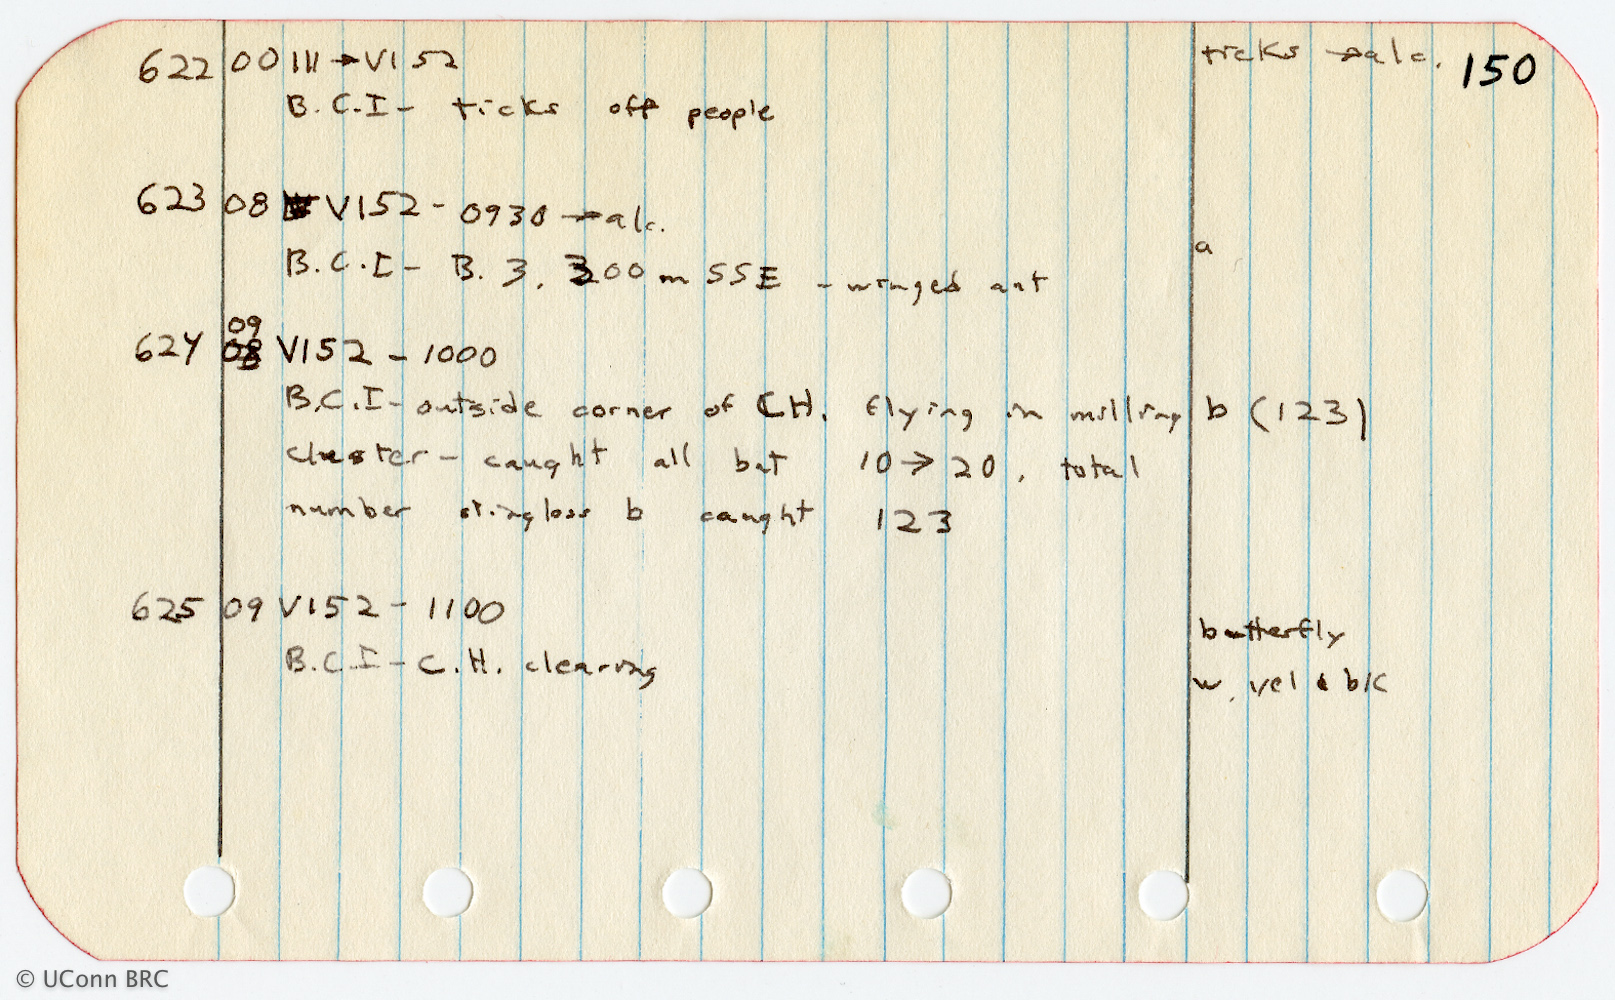 622 00 III → VI 52 ticks → alc. 150
B.C.I - ticks off people
623 08 VI 52 - 0930 → alc.
a
B.C.I - B. 3, 300 m SSE - winged ant
09
624 08 VI 52 - 1000
B.C.I - outside corner of CH. flying in milling b (123)
cluster - caught all but 10 → 20, total
number stingless b caught 123
625 09 VI 52 - 1100
butterfly
B.C.I - C.H. clearing
w. yel & blk
© UConn BRC